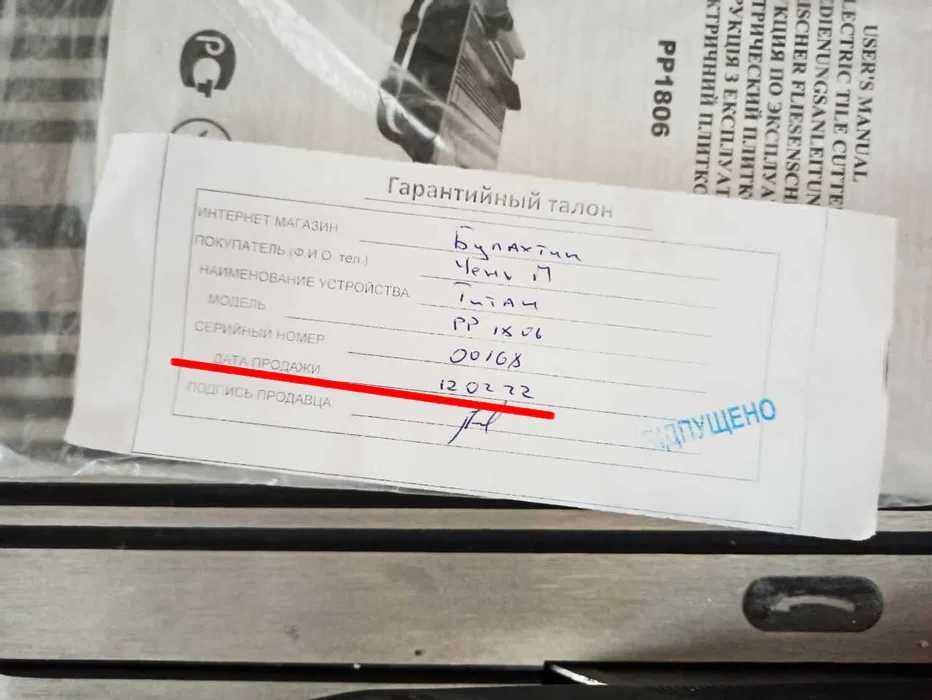 РСТ
PP1806
USER'S MANUAL
ELECTRIC TILE CUTTE
BEDIENUNGSANLEITUN
ISCHER FLIESENSCH
КЦИЯ ПО ЭКСПЛУА
ТРИЧЕСКИЙ ПЛИТК
РУКЦІЯ З ЕКСПЛУАТ
КТРИЧНИЙ ПЛИТКО
Гарантийный талон
ИНТЕРНЕТ МАГАЗИН
ПОКУПАТЕЛЬ (Ф.И.О. тел.) Булахтин
НАИМЕНОВАНИЕ УСТРОЙСТВА Титан
МОДЕЛЬ PP 1806
СЕРИЙНЫЙ НОМЕР 00168
ДАТА ПРОДАЖИ 12 02 22
ПОДПИСЬ ПРОДАВЦА
ВІДПУЩЕНО